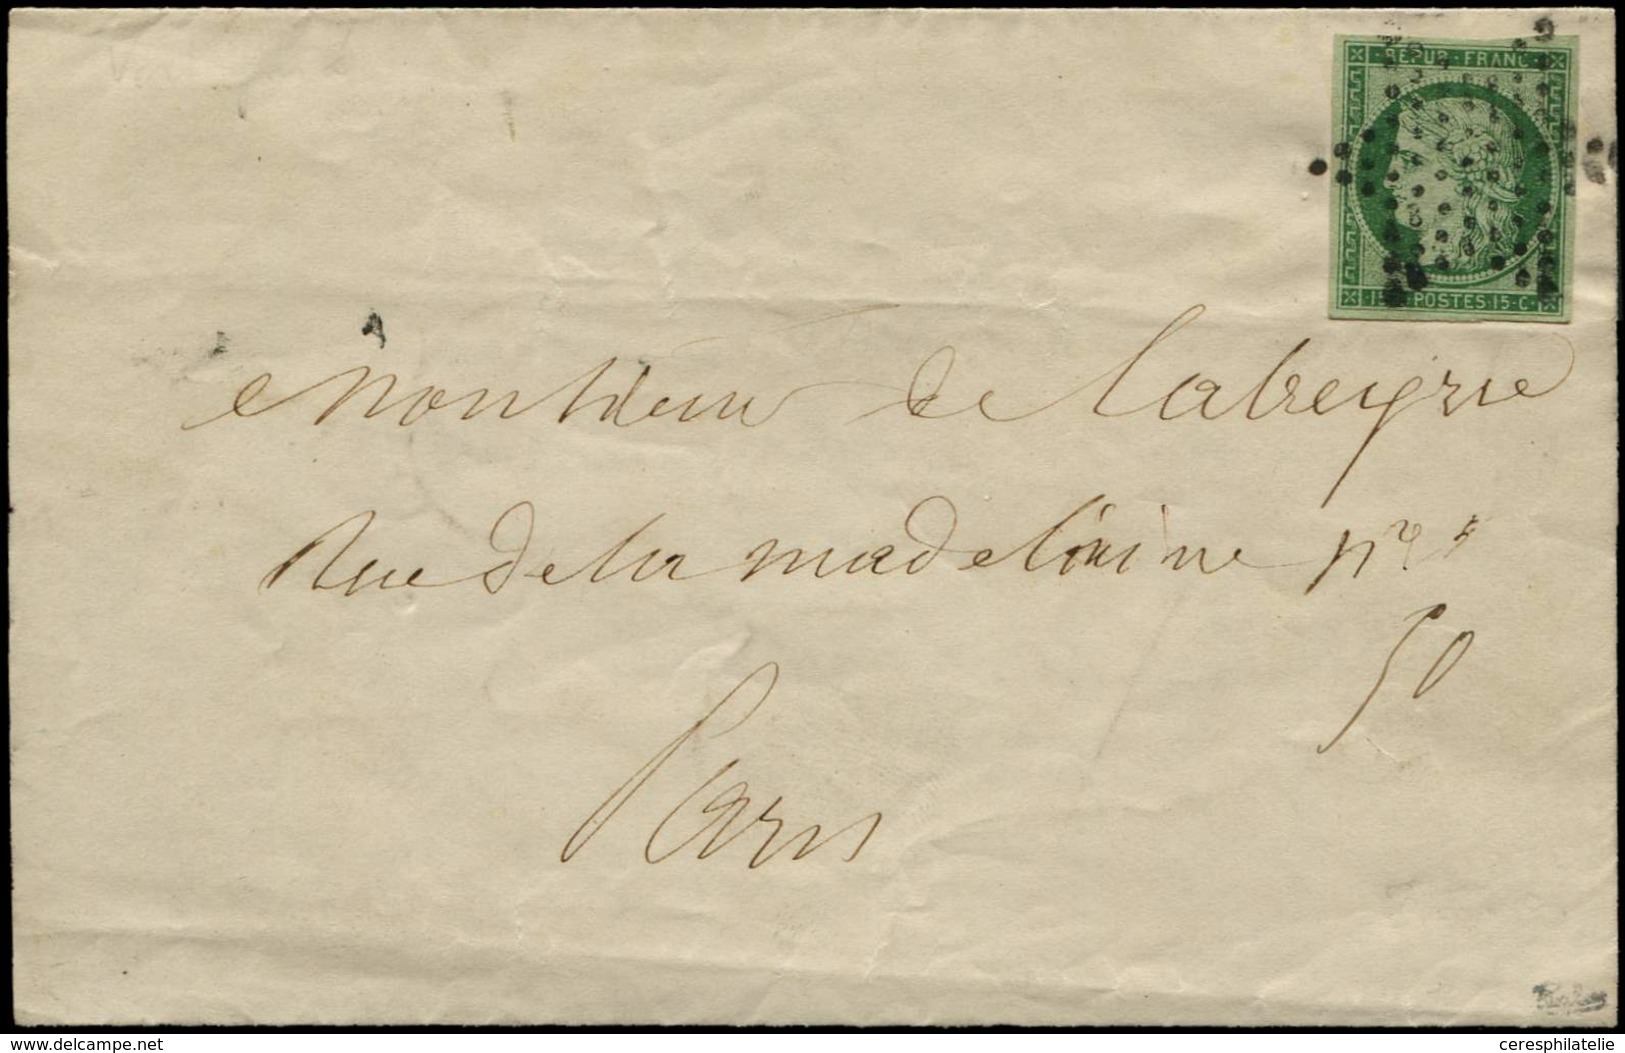 REPUB FRANC
POSTES 15 C
Monsieur de Labreyrie
Rue de la madeleine
50
Paris
© delcampe.net
ceresphilatelie